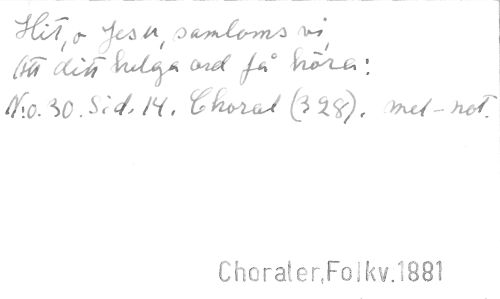 Hit, o Jesu, samloms vi,
Att ditt helga ord få höra:
N:o. 30. Sid. 14. Choral (328). mel-not.
Choraler,Folkv.1881